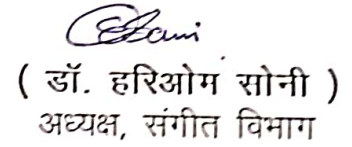 ( डॉ. हरिओम सोनी )
अध्यक्ष, संगीत विभाग